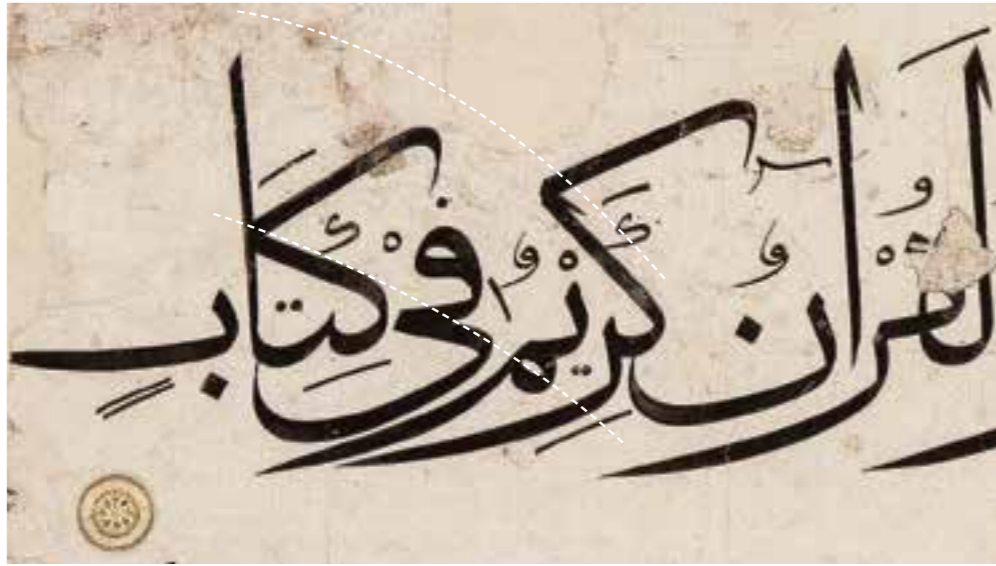 لَقُرْاٰنٌ كَرِيْمٌ فِيْ كِتَابٍ